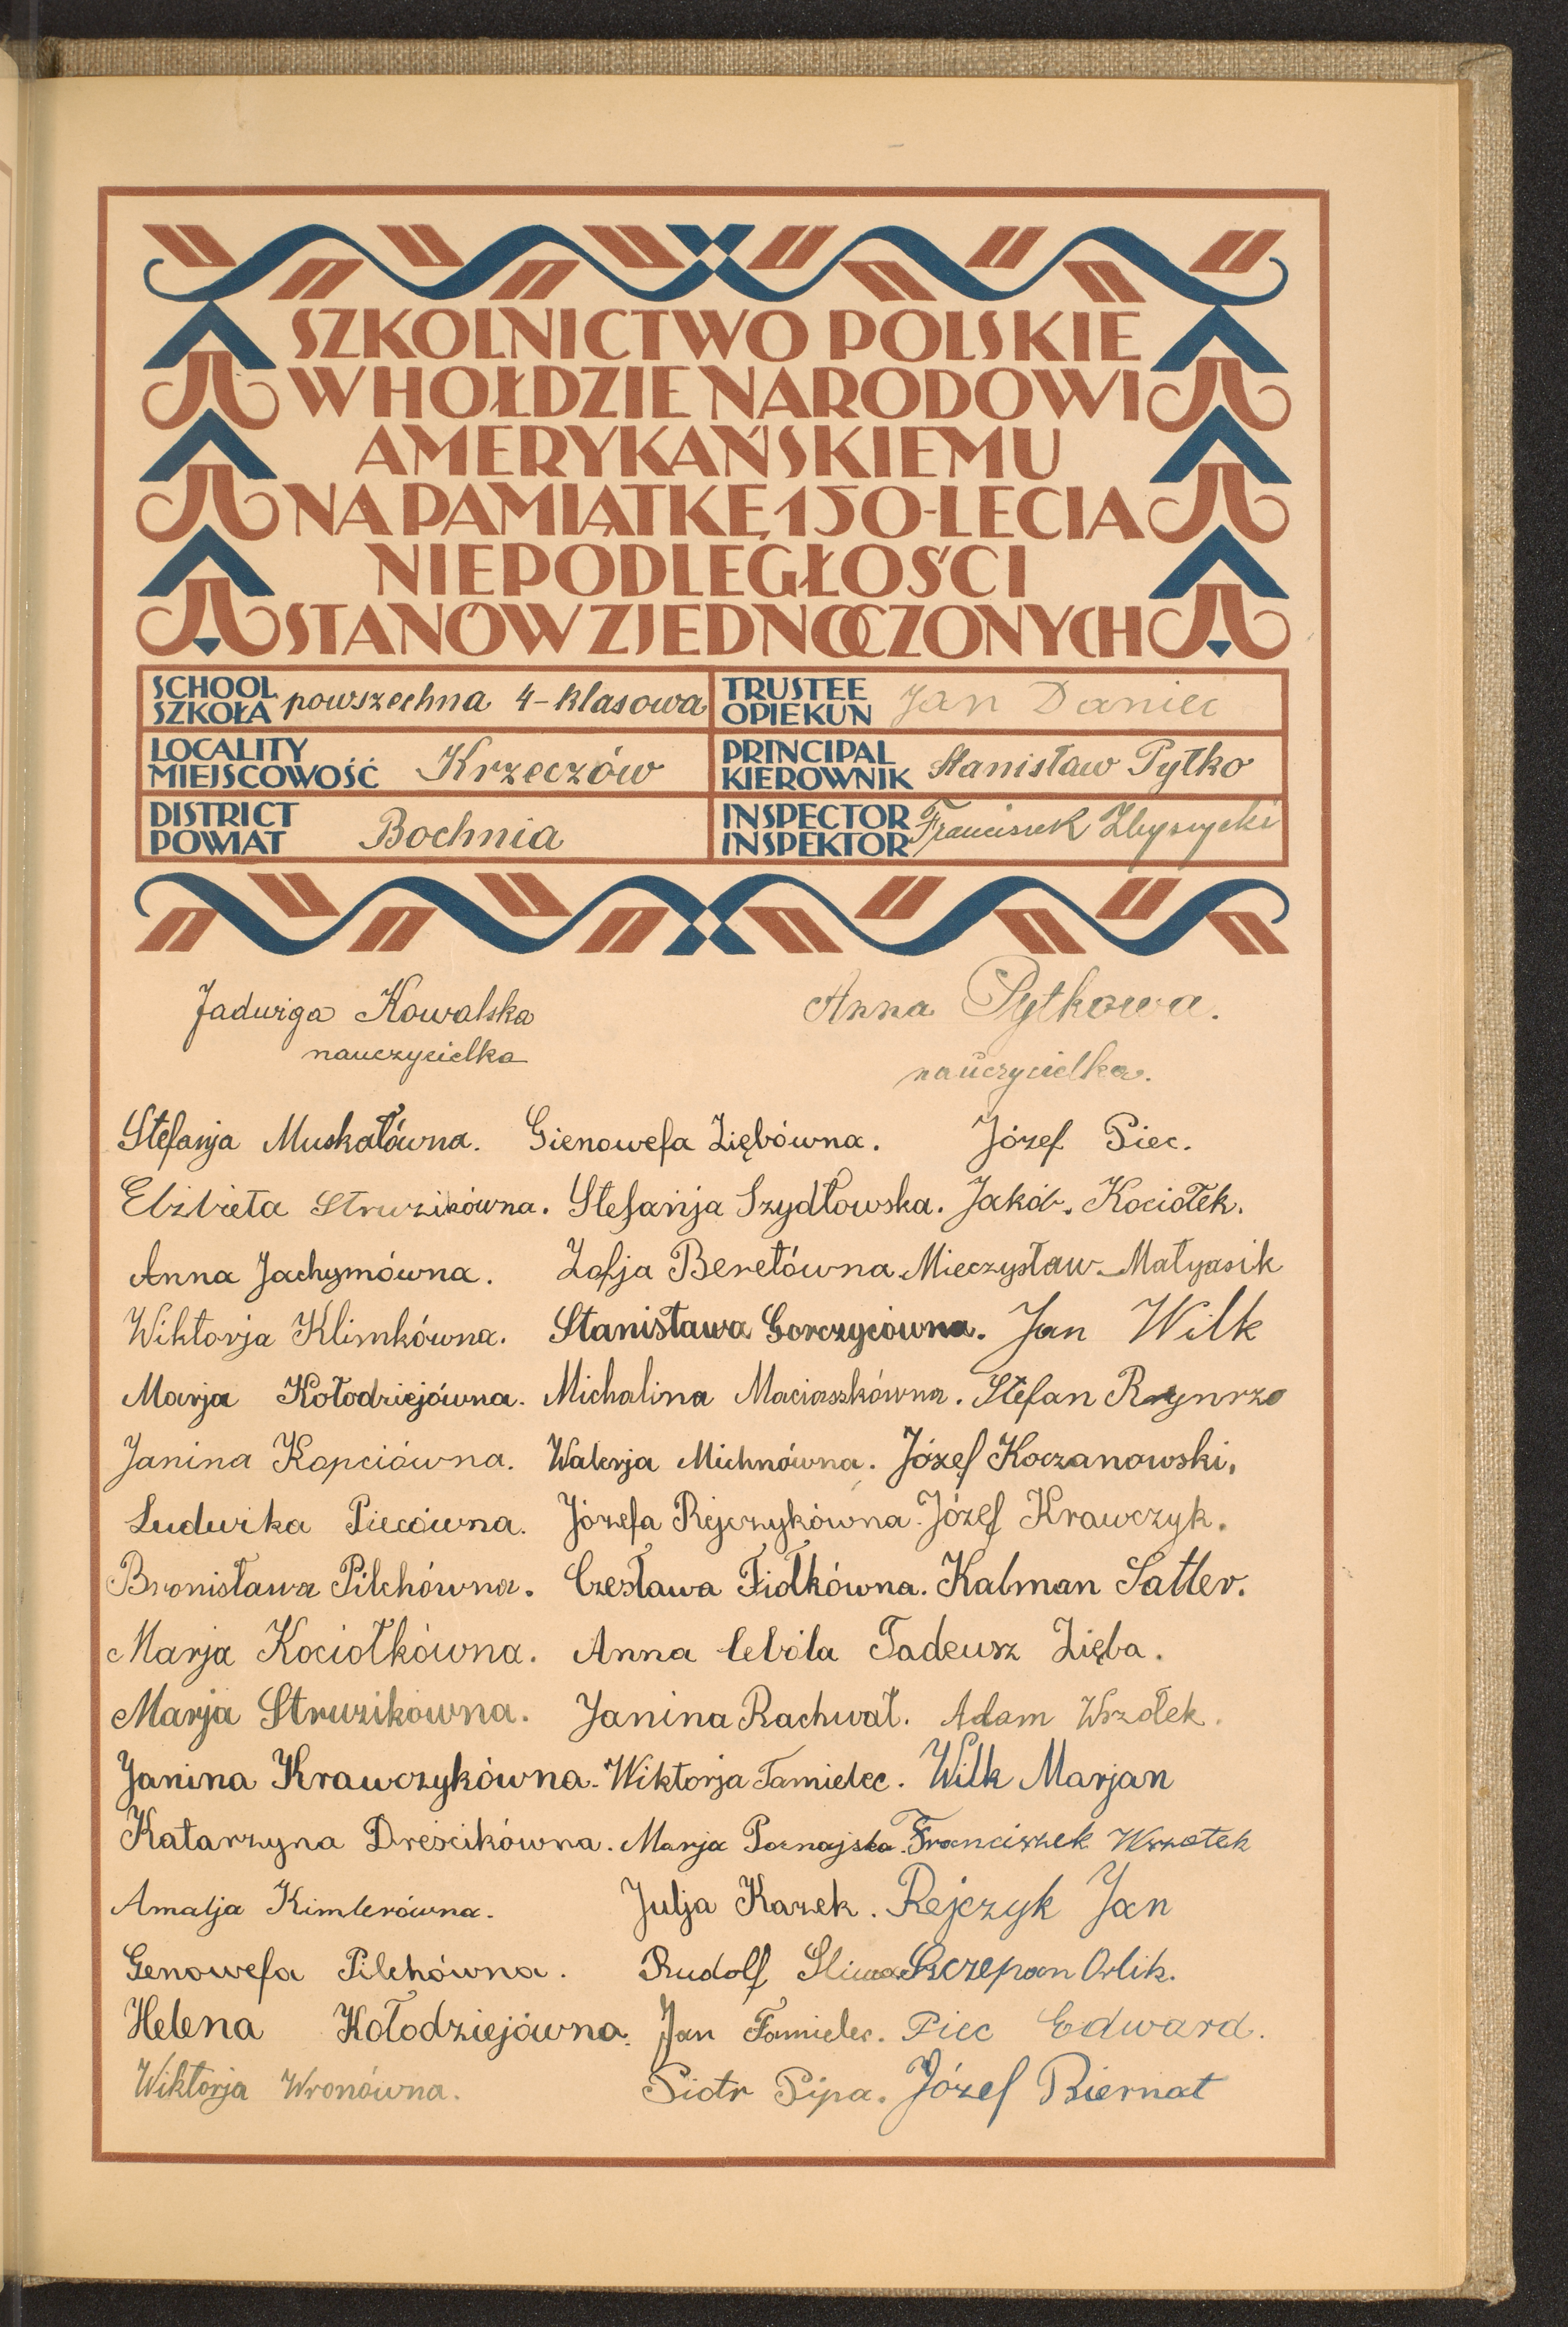 SZKOLNICTWO POLSKIE
W HOŁDZIE NARODOWI
AMERYKAŃSKIEMU
NA PAMIĄTKĘ 150-LECIA
NIEPODLEGŁOŚCI
STANÓW ZJEDNOCZONYCH
SCHOOL SZKOŁA powszechna 4-klasowa TRUSTEE OPIEKUN Jan Daniec
LOCALITY MIEJSCOWOŚĆ Krzeczów PRINCIPAL KIEROWNIK Stanisław Pytko
DISTRICT POWIAT Bochnia INSPECTOR INSPEKTOR Franciszek
Jadwiga Kowalska Anna Pytkowa.
nauczycielka nauczycielka.
Stefanja Muskałówna. Gienowefa Ziębówna. Józef Piec.
Elżbieta Struzikówna. Stefanja Szydłowska. Jakób. Kociołek.
Anna Jachymówna. Zofja Beretówna. Mieczysław Małyasik
Wiktorja Klimkówna. Stanisława Gorczycówna. Jan Wilk
Marja Kołodziejówna. Michalina Maciaszkówna. Stefan
Janina Kopciówna. Walerja Michnówna. Józef Koczanowski,
Ludwika Piecówna. Józefa Rejczykówna. Józef Krawczyk.
Bronisława Pilchówna. Czesława Fiołkówna. Kalman Sattler.
Marja Kociołkówna. Anna Cebóla Tadeusz Zięba.
Marja Struzikówna. Janina Rachwał. Adam Wrzołek.
Janina Krawczykówna. Wiktorja Tamielec. Wilk Marjan
Katarzyna Dreścikówna. Marja Poznajska. Franciszek Wrzołek
Amalja Kimlerówna. Julja Kazek. Rejczyk Jan
Genowefa Pilchówna. Rudolf Śliwa. Szczepan Orlik.
Helena Kołodziejówna. Jan Tamielec. Piec Edward.
Wiktorja Wronówna. Piotr Pipa. Józef Biernat